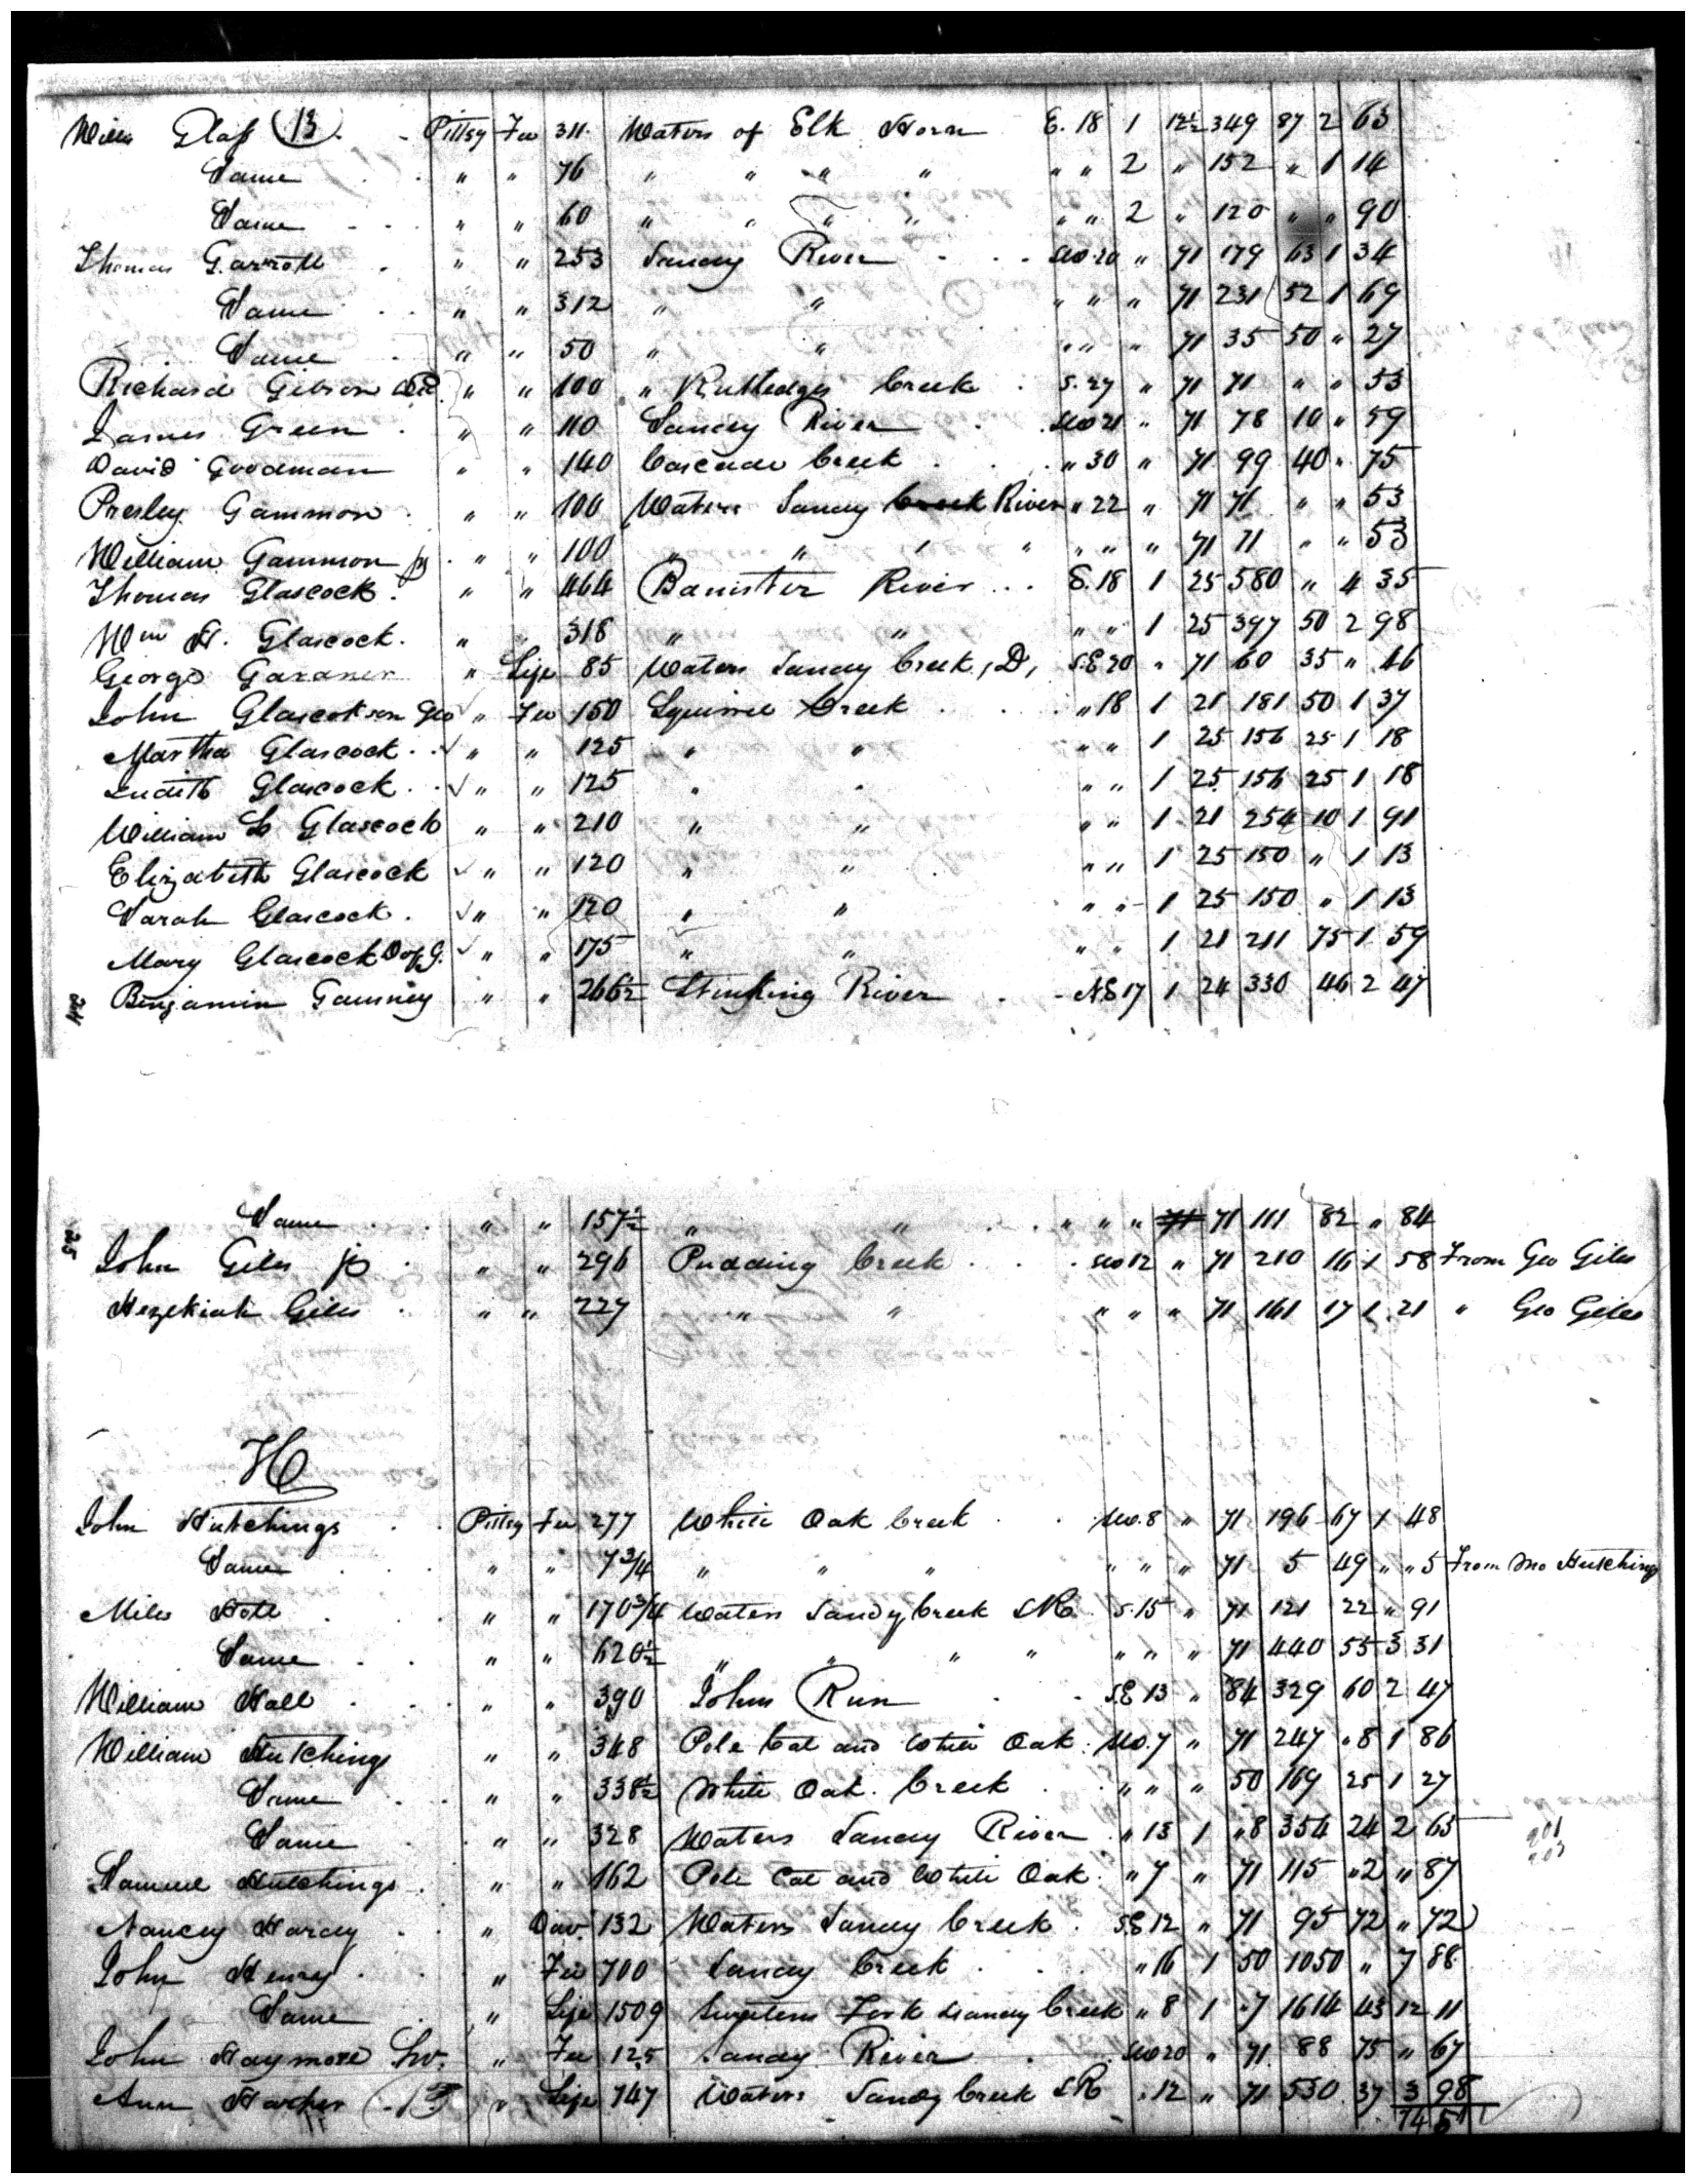 Willm Glass (13) Pittsy Fee 311 Waters of Elk Horn E. 18 1 12½ 349 87 2 63
Same " " 76 " " " " " " 2 " 152 " 1 14
Same " " 60 " " " " " " 2 " 120 " " 90
Thomas Garrott " " 253 Sandy River SW 20 " 71 179 63 1 34
Same " " 312 " " " " " 71 231 52 1 69
Same " " 50 " " " " " 71 35 50 " 27
Richard Gibson " " 100 " Rutledges Creek S. 27 " 71 71 " " 53
James Green " " 110 Sandy River SW 21 " 71 78 10 " 59
David Goodman " " 140 Cascade Creek " 30 " 71 99 40 " 75
Presley Gammon " " 100 Waters Sandy Creek River " 22 " 71 71 " " 53
William Gammon jr " " 100 " " " " " " 71 71 " " 53
Thomas Glascock " " 464 Banister River E. 18 1 25 580 " 4 35
Wm H. Glascock " " 318 " " " " 1 25 397 50 2 98
George Gardner " Life 85 Waters Sandy Creek, D, S.E 20 " 71 60 35 " 46
John Glascock son Geo " Fee 150 Squirrel Creek " 18 1 21 181 50 1 37
Martha Glascock " " 125 " " " " 1 25 156 25 1 18
Judith Glascock " " 125 " " " " 1 25 156 25 1 18
William L Glascock " " 210 " " " " 1 21 254 10 1 91
Elizabeth Glascock " " 120 " " " " 1 25 150 " 1 13
Sarah Glascock " " 120 " " " " 1 25 150 " 1 13
Mary Glascock D of G. " " 175 " " " " 1 21 211 75 1 59
244 Benjamin " " 266½ Stinking River N.E 17 1 24 330 46 2 47
245 Same " " 157½ " " " " " 71 71 111 82 " 84
John Giles jr " " 296 Pudding Creek SW 12 " 71 210 16 1 58 From Geo Giles
Hezekiah Giles " " 227 " " " " " 71 161 17 1 21 " Geo Giles
H
John Hutchings Pittsy Fee 277 White Oak Creek SW. 8 " 71 196 67 1 48
Same " " 7¾ " " " " " " 71 5 49 " " 5 From Mo Hutching
Miles Hall " " 170¾ Waters Sandy Creek S R S. 15 " 71 121 22 " 91
Same " " 620½ " " " " " " " 71 440 55 3 31
William Hall " " 390 Johns Run S.E 13 " 84 329 60 2 47
William Hutchings " " 348 Pole Cat and White Oak SW. 7 " 71 247 " 8 1 86
Same " " 338½ White Oak Creek " " " 50 169 25 1 27
Same " " 328 Waters Sandy River " 13 1 " 8 354 24 2 65
Samuel Hutchings " " 162 Pole Cat and White Oak " 7 " 71 115 " 2 " 87
Nancy Hardy " 132 Waters Sandy Creek S.E 12 " 71 95 72 " 72
John Henry " Fee 700 Sandy Creek " 16 1 50 1050 " 7 88
Same " Life 1509 Sweetens Fork Sandy Creek " 8 1 "7 1614 43 12 11
John Haymore " Fee 125 Sandy River SW 20 " 71 88 75 " 67
Ann Harper (13) " Life 747 Waters Sandy Creek S R " 12 " 71 530 37 3 98
74 51